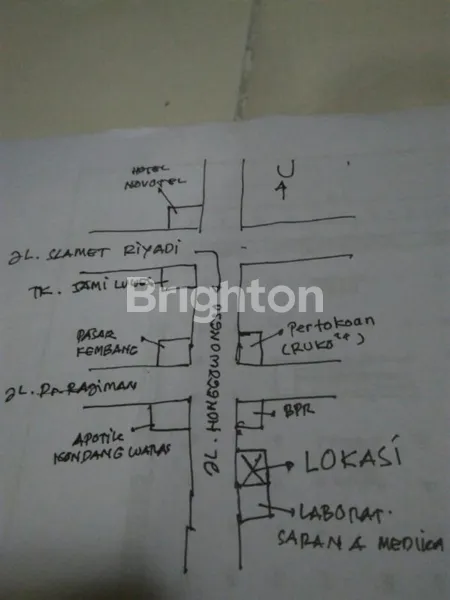 HOTEL
NOVOTEL
U
JL. SLAMET RIYADI
TK. JAMI
Brighton
PASAR
KEMBANG
Pertokoan
(RUKO²)
JL. DR. RAJIMAN
JL. HONGGOWONGSO
BPR
APOTIK
KONDANG WARAS
LOKASI
LABORAT.
SARANA MEDIKA